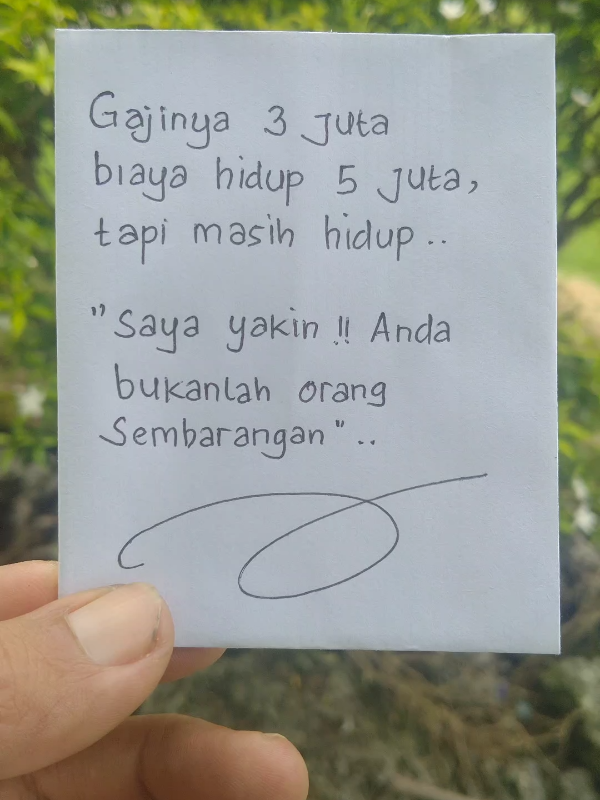 Gajinya 3 Juta
biaya hidup 5 Juta,
tapi masih hidup..
"Saya yakin !! Anda
bukanlah orang
Sembarangan"..